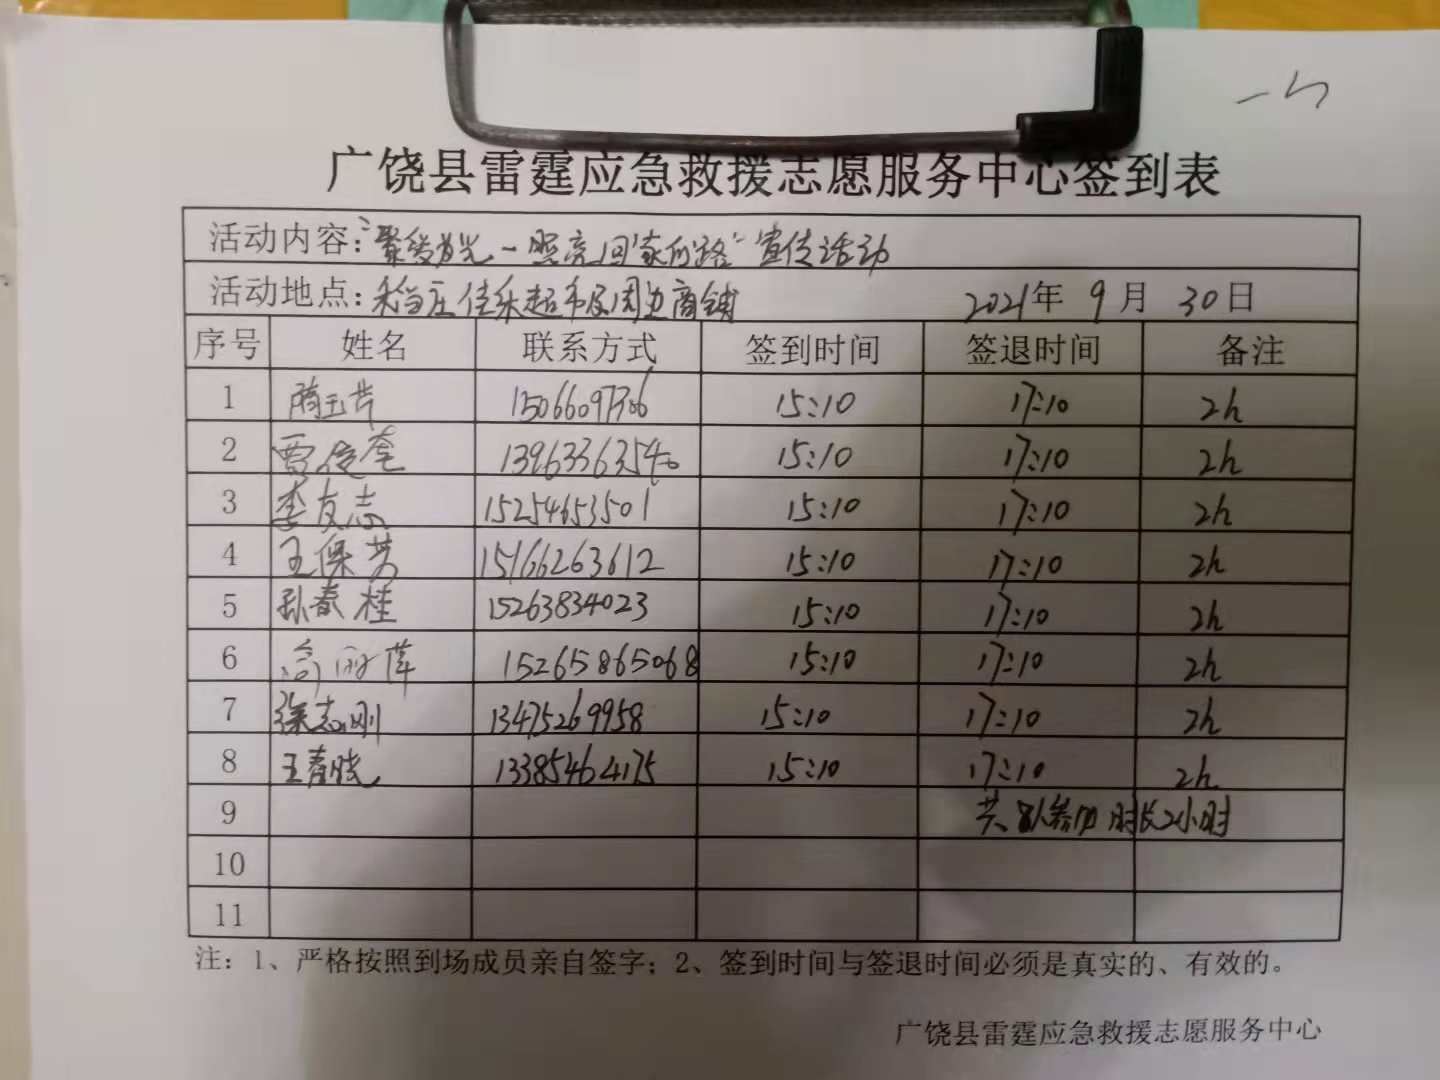 广饶县雷霆应急救援志愿服务中心签到表
活动内容:"聚爱为光一照亮回家的路"宣传活动
活动地点:稻庄佳乐超市及周边商铺 2021年 9月 30日
序号 姓名 联系方式 签到时间 签退时间 备注
1 隋玉芹 15066097306 15:10 17:10 2h
2 贾俊奎 13963363540 15:10 17:10 2h
3 李友志 15254653501 15:10 17:10 2h
4 王保芳 15166263612 15:10 17:10 2h
5 孙春桂 15263834023 15:10 17:10 2h
6 15265865068 15:10 17:10 2h
7 徐志刚 13475269958 15:10 17:10 2h
8 王春晓 13385464175 15:10 17:10 2h
9 共8人参加 时长2小时
10
11
注:1、严格按照到场成员亲自签字;2、签到时间与签退时间必须是真实的、有效的。
广饶县雷霆应急救援志愿服务中心